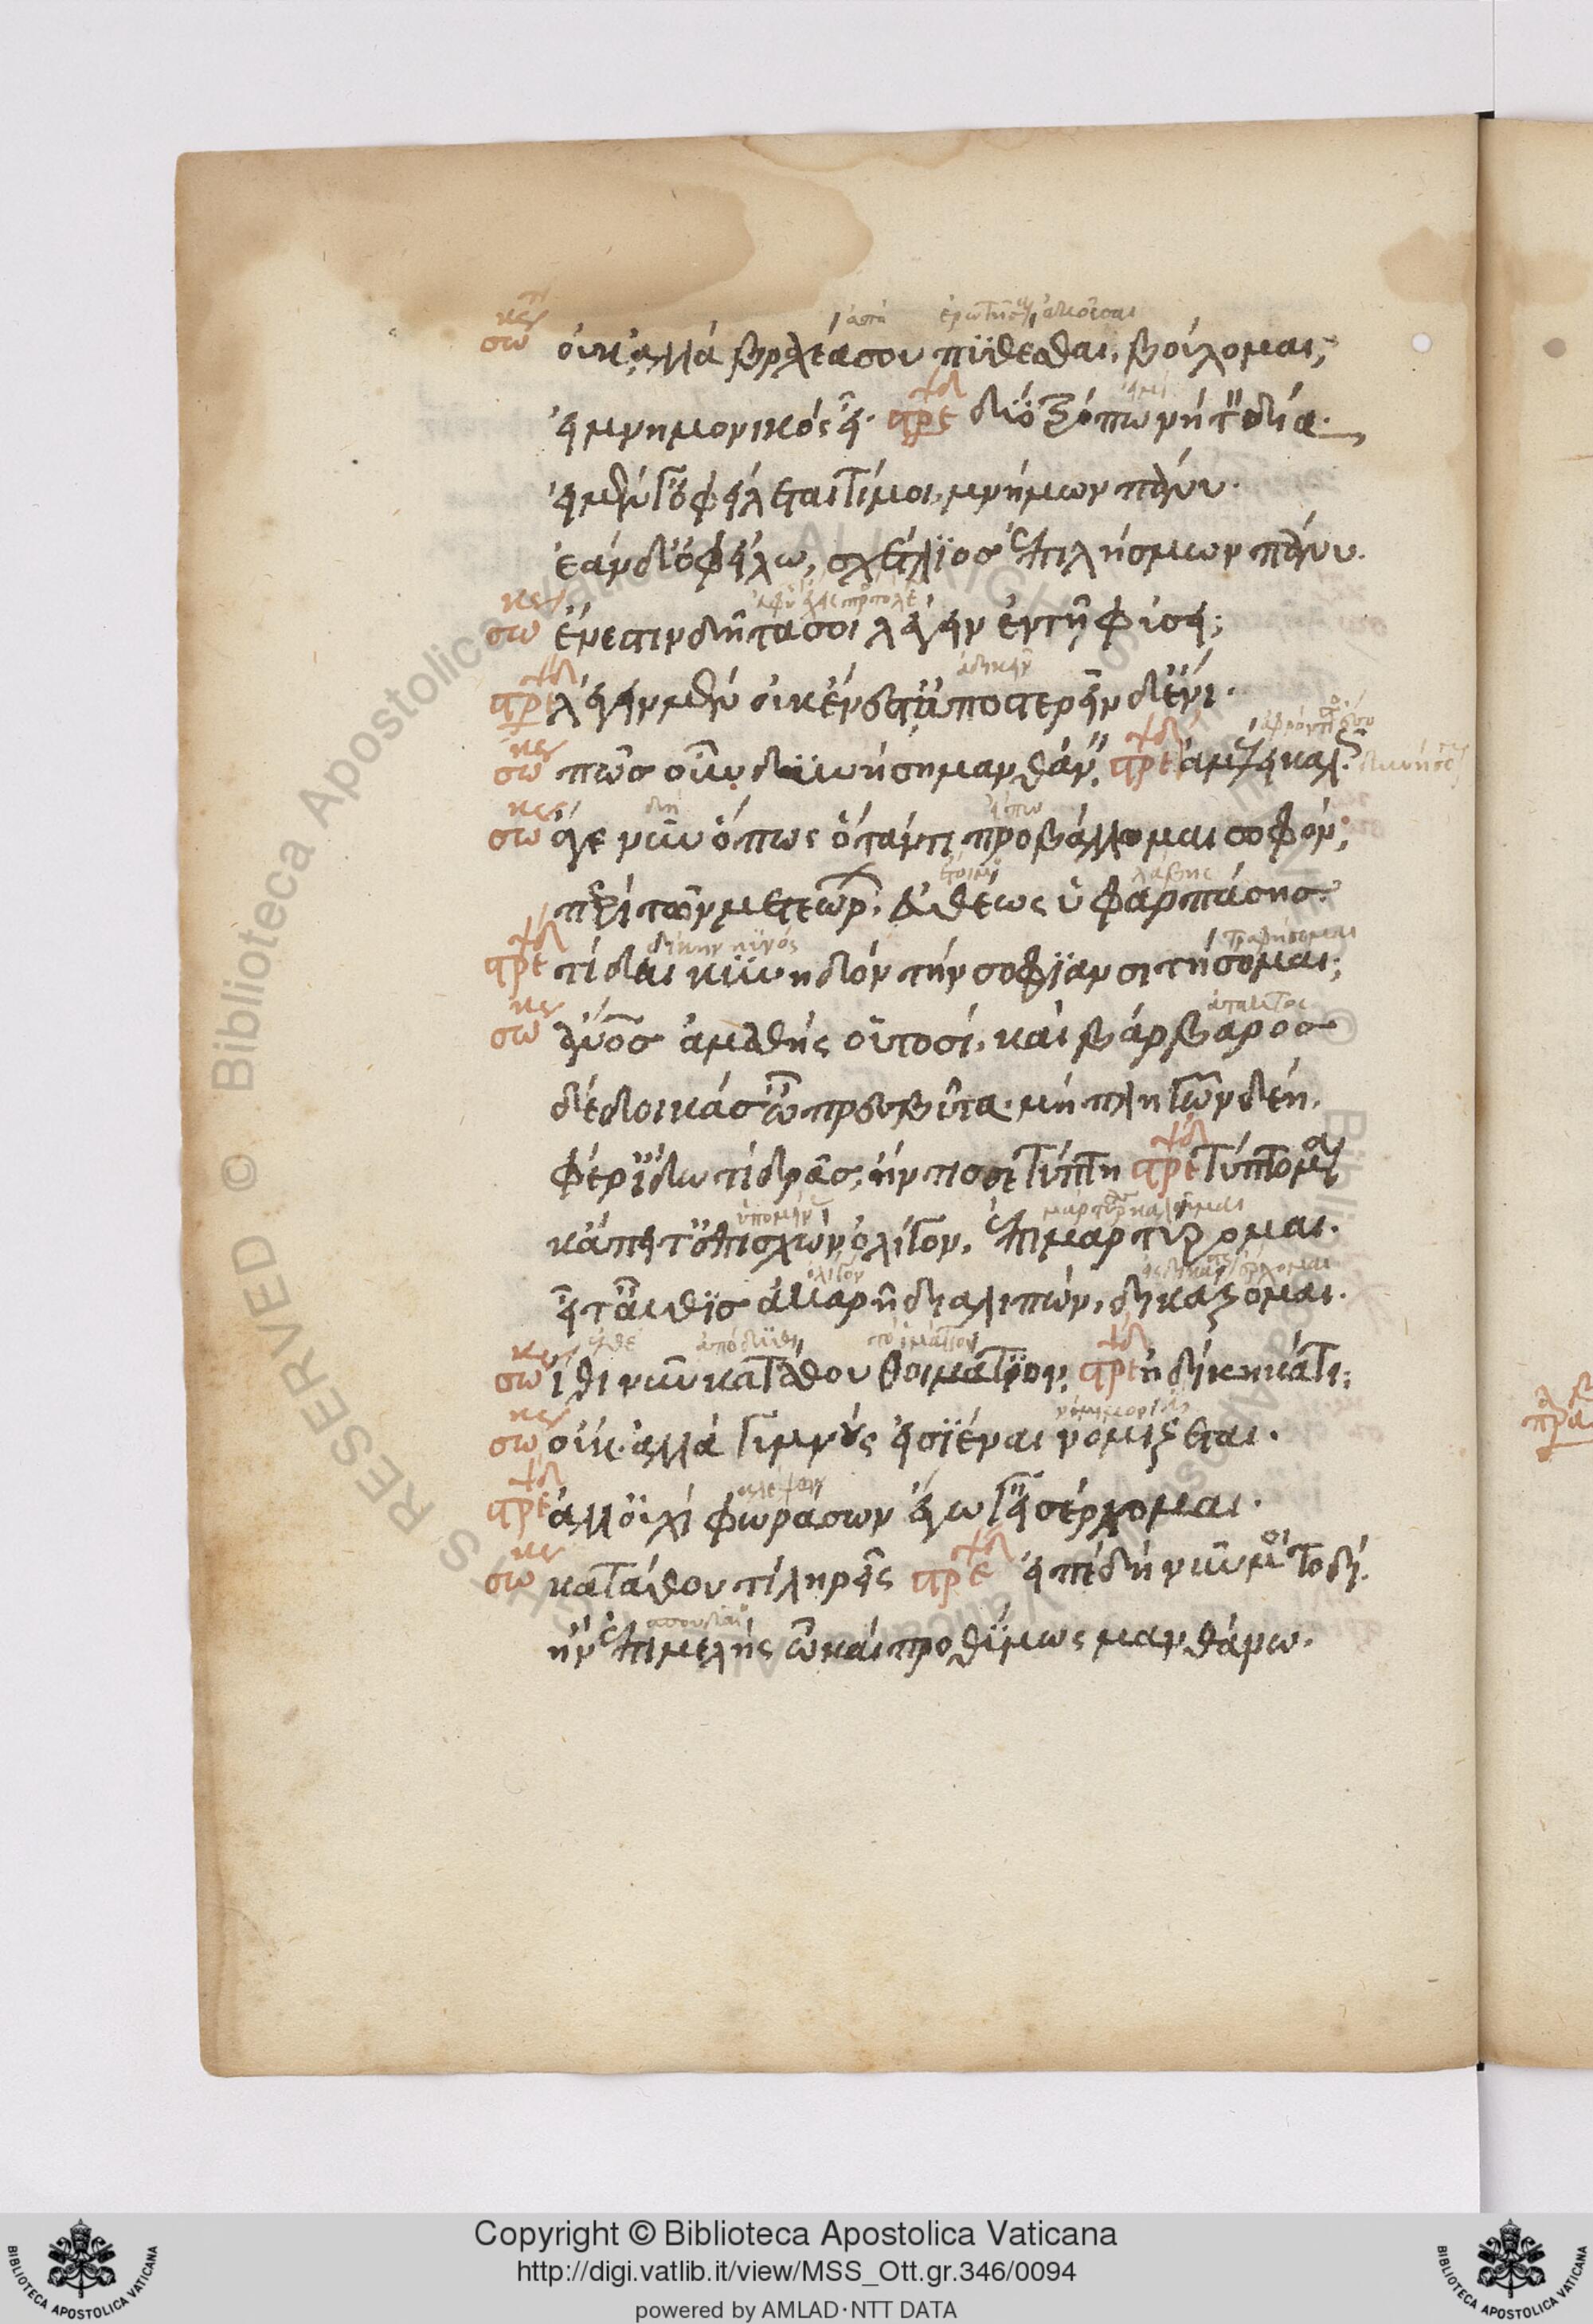 σω οὐκ ἀλλὰ βραχέα σου πυθέσθαι βούλομαι;
εἰ μνημονικὸς εἶ· στρε δύο τρόπω νὴ τὸν δία·
εἰ μὲν γ' ὀφείλεταί τι μοι, μνήμων πάνυ·
ἐὰν δ' ὀφείλω, σχέτλιος ἐπιλήσμων πάνυ·
σω ἔνεστι δῆτά σοι λέγειν ἐν τῇ φύσει;
στρε λέγειν μὲν οὐκ ἔνεστ' ἀποστερεῖν δ' ἔνι·
σω πῶς οὖν δυνήσῃ μανθάνειν; στρε ἀμέλει καλῶς
σω ἄγε νῦν ὅπως ὅταν τι προβάλλομαι σοφόν;
περὶ τῶν μετεώρων, εὐθέως ὑφαρπάσῃς·
στρε τί δαὶ κυνηδὸν τὴν σοφίαν σιτήσομαι;
σω ἄνθρωπος ἀμαθὴς οὑτοσί, καὶ βάρβαρος
δέδοικά σ' ὦ πρεσβῦτα μὴ πληγῶν δέῃ·
φέρ' ἴδω τί δρᾷς, ἤν τίς σε τύπτῃ στρε τύπτομαι
κἄπειτ' ἐπισχὼν ὀλίγον, ἐπιμαρτύρομαι·
εἶτ' αὖθις ἀκαρῆ διαλιπών, δικάζομαι·
σω ἴθι νῦν κατάθου θοιμάτιον, στρε ἠδίκηκά τι;
σω οὐκ ἀλλὰ γυμνοὺς εἰσιέναι νομίζεται·
στρε ἀλλ' οὐχὶ φωράσων ἔγωγ' εἰσέρχομαι·
σω κατάθου τί ληρεῖς στρε εἰπὲ δή νῦν μοι τοδί·
ἢν ἐπιμελὴς ὦ καὶ προθύμως μανθάνω·
Copyright © Biblioteca Apostolica Vaticana
http://digi.vatlib.it/view/MSS_Ott.gr.346/0094
powered by AMLAD·NTT DATA